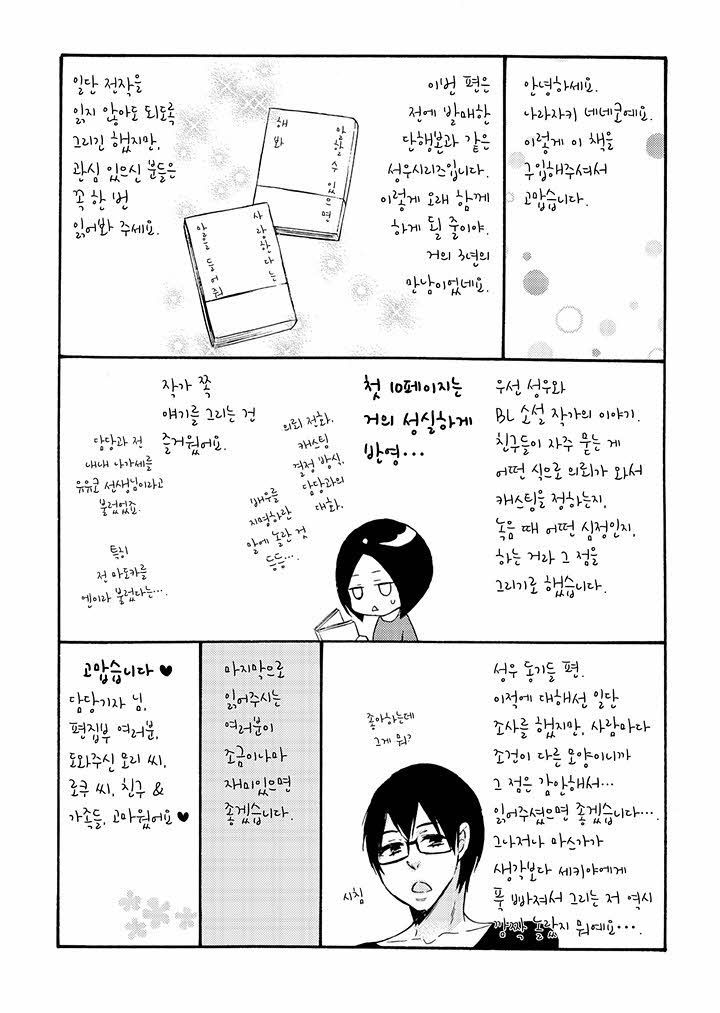 안녕하세요.
나라자키 네네코예요.
이렇게 이 책을
구입해주셔서
고맙습니다.
이번 편은
전에 발매한
단행본과 같은
성우시리즈입니다.
이렇게 오래 함께
하게 될 줄이야.
거의 3년의
만남이었네요.
말할 수 있으면
해 봐
사랑한다는
말을 들어줘
일단 전작을
읽지 않아도 되도록
그리긴 했지만,
관심 있으신 분들은
꼭 한 번
읽어봐 주세요.
우선 성우와
BL 소설 작가의 이야기.
친구들이 자주 묻는 게
어떤 식으로 의뢰가 와서
캐스팅을 정하는지,
녹음 때 어떤 심정인지,
하는 거라 그 점을
그리기로 했습니다.
첫 10페이지는
거의 성실하게
반영…
의뢰 전화,
캐스팅
결정 방식,
담당과의
대화,
배우를
지명하란
말에 놀란 것
등등….
작가 쪽
얘기를 그리는 건
즐거웠어요.
담당과 전
내내 아가세를
유유코 선생님이라고
불렀었죠.
특히
전 마도카를
엔이라 불렀다는….
성우 동기들 편.
이적에 대해선 일단
조사를 했지만, 사람마다
조건이 다른 모양이니까
그 점은 감안해서…
읽어주셨으면 좋겠습니다….
그나저나 마스가가
생각보다 세키야에게
푹 빠져서 그리는 저 역시
깜짝 놀랐지 뭐예요….
좋아하는데
그게 뭐?
시침
마지막으로
읽어주시는
여러분이
조금이나마
재미있으면
좋겠습니다.
고맙습니다 ♥
담당기자 님,
편집부 여러분,
도와주신 모리 씨,
로쿠 씨, 친구 &
가족들, 고마웠어요 ♥